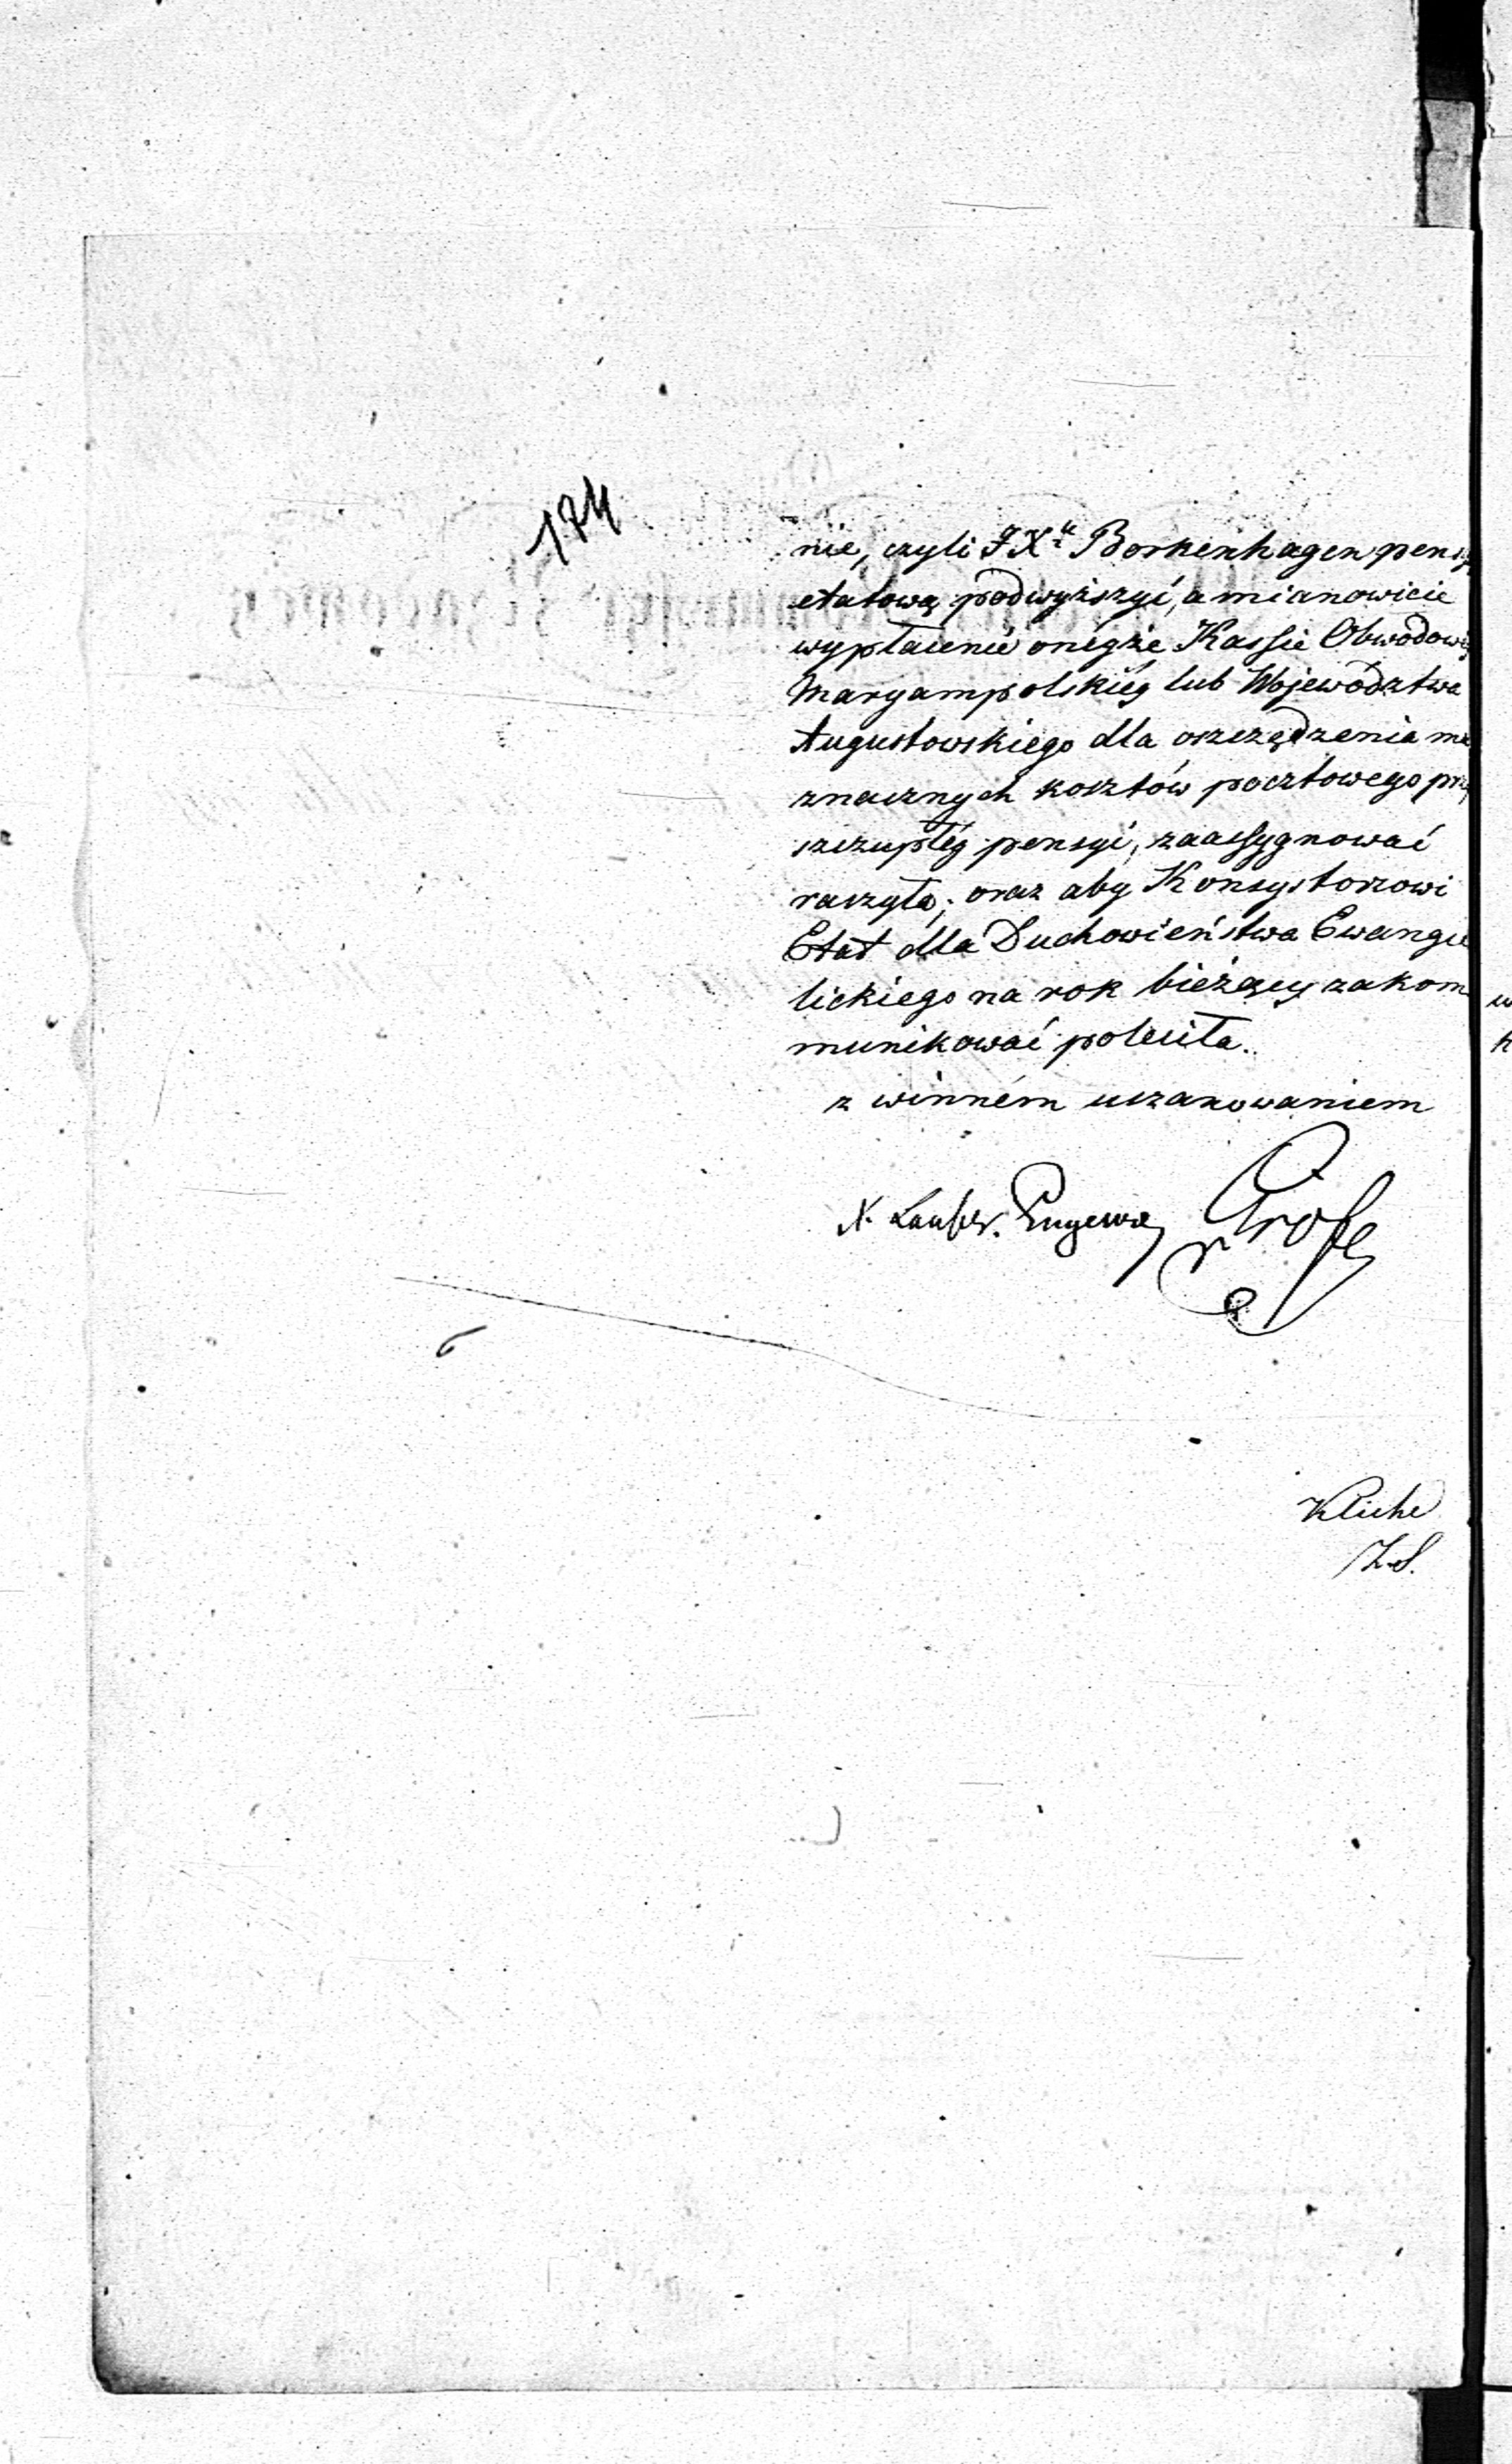 174
nie, czyli JX<sup>u</sup> Borkenhagen pensy
etatową podwyższyć, a mianowicie
wypłacenie onéyże Kassie Obwodowéy
Maryampolskiéy lub Województwa
Augustowskiego dla oszczędzenia
znacznych kosztów pocztowego przy
szczupłéy pensyi, zaassygnować
raczyła; oraz aby Konsystorzowi
Etat dla Duchowieństwa Ewange
lickiego na rok bieżący zakom
munikować poleciła.
z winném uszanowaniem
X. Lauber.
Kliche
Z.S.